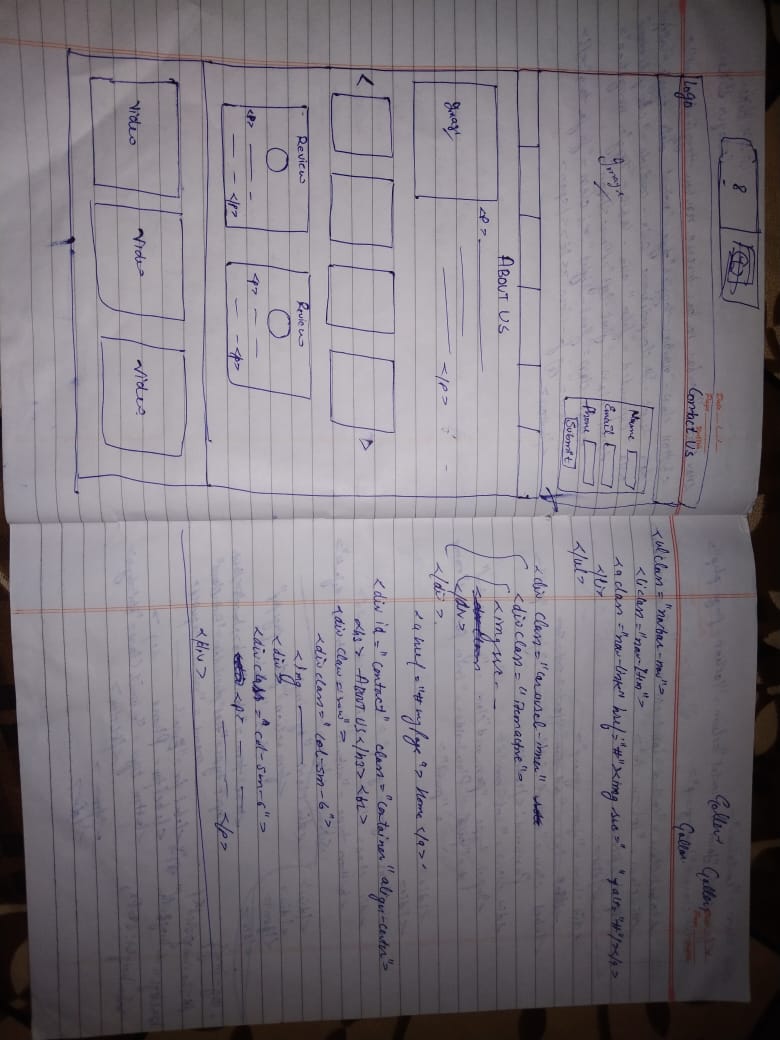 8
Logo
Contact Us
Image
Name
Email
Phone
Submit
ABOUT US
Image
<p>
</p>
<
Review
Review
<p>
</p>
<p>
<p>
Video
Video
Video
Galler
Gallery
<ul class="navbar-nav">
<li class="nav-item">
<a class="nav-link" href="#"><img src=" " alt="#"/></a>
</li>
</ul>
<div class="carousel-inner"
<div class="item active">
<img src - -
</div>
</div>
<a href="#myPage"> Home </a>
<div id="contact" class="container" align-center">
<h3> ABOUT US </h3> <br>
<div class="row">
<div class="col-sm-6">
<img
<div
<div class="col-sm-6">
<p>
</p>
</div>